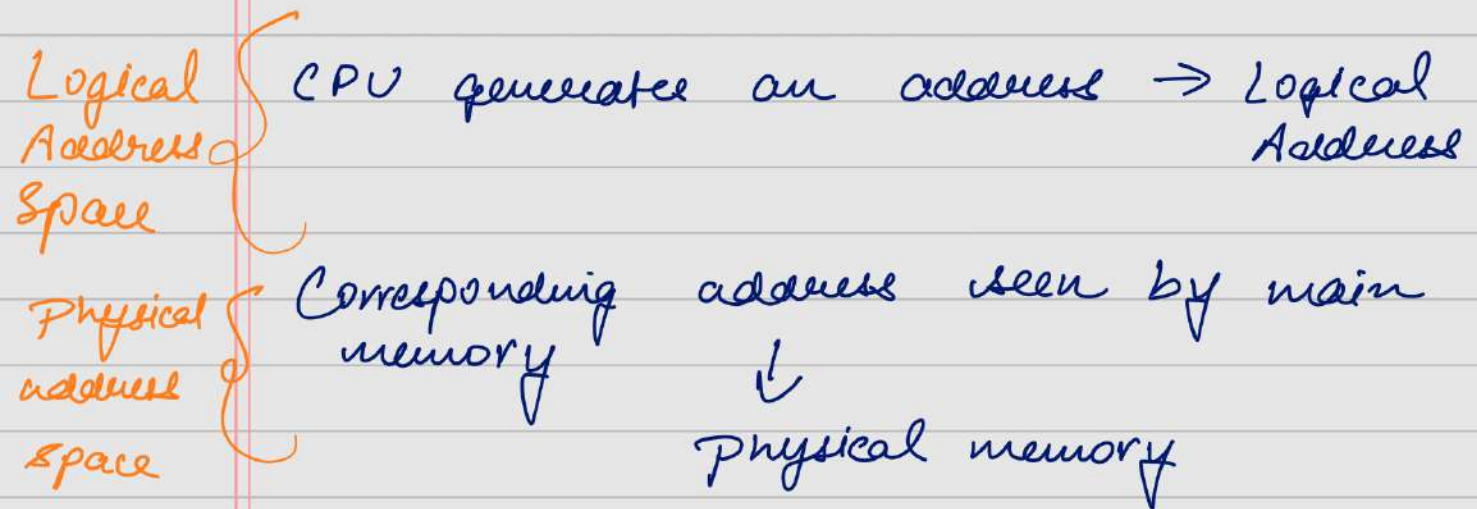 Logical
Address
Space
CPU generates an address → Logical
Address
Physical
address
space
Corresponding address seen by main
memory ↓
Physical memory